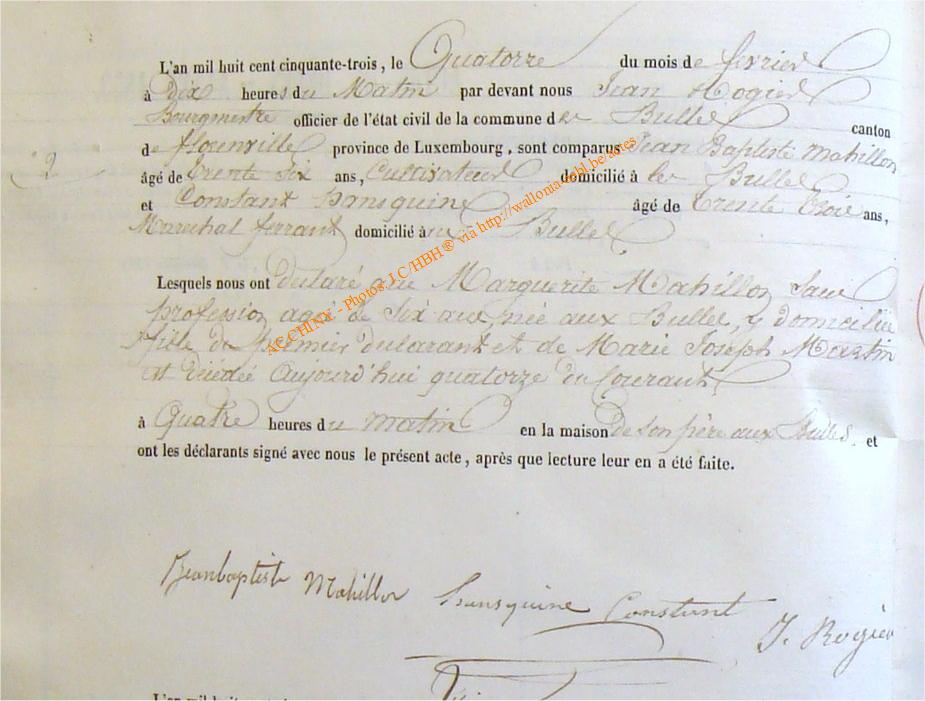 L'an mil huit cent cinquante-trois, le Quatorze du mois de fevrier
à Dix heures du Matin par devant nous Jean Rogier
Bourgmestre officier de l'état civil de la commune des Bulles canton
de florenville province de Luxembourg, sont comparus Jean Baptiste Mahillon
2
âgé de trente Six ans, Cultivateur domicilié à les Bulles
et Constant Hansquine âgé de Trente Trois ans,
Marechal ferrant domicilié à Bulles
Lesquels nous ont declaré que Marguerite Mahillon Sans
profession agée de Six ans, née aux Bulles, y domiciliée
fille du premier declarant et de Marie Joseph Martin
est décédée Aujourd'hui quatorze du Courant
à Quatre heures du matin en la maison de son père aux Bulles. et
ont les déclarants signé avec nous le présent acte, après que lecture leur en a été faite.
Jeanbaptiste Mahillon Hansquine Constant
J. Rogier
L'an mil huit cent
ACCHINX - Photos J.C/HBH ® via http://wallonia-gehl.be/actes